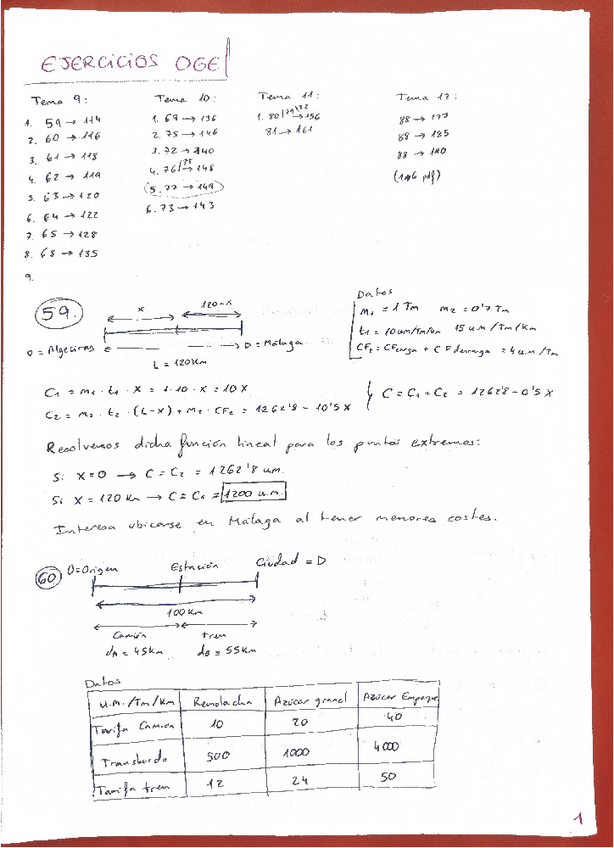 EJERCICIOS OGE
Tema 9:
1. 59 → 114
2. 60 → 116
3. 61 → 118
4. 62 → 119
5. 63 → 120
6. 64 → 122
7. 65 → 128
8. 68 → 135
9.
Tema 10:
1. 69 → 136
2. 75 → 146
3. 72 → 140
4. 76/ → 148
5. 77 → 149
6. 73 → 143
Tema 11:
1. 80/ → 156
81 → 161
Tema 12:
88 → 177
88 → 185
88 → 180
59.
x 120-x
O = Algeciras D = Málaga
L = 120 Km
Datos
m1 = 1 Tm m2 = 0'7 Tm
t1 = 10 um/Tm/Km 15 um/Tm/Km
CF2 = CFcarga + CFdescarga = 4 um/Tm
C1 = m1 · t1 · x = 1·10·x = 10x
C2 = m2 · t2 · (L-x) + m2 · CF2 = 1262'8 - 10'5x
C = C1 + C2 = 1262'8 - 0'5x
Resolvemos dicha función lineal para los puntos extremos:
Si x=0 → C = C2 = 1262'8 um.
Si x = 120 Km → C = C1 = 1200 u.m.
Interesa ubicarse en Málaga al tener menores costes.
60 O=Origen Estación Ciudad = D
100 Km
Camión tren
dA = 45 Km dB = 55 Km
Datos
U.M./Tm/Km Remolacha Azúcar granel Azúcar Empaque
Tarifa Camión 10 20 40
Transbordo 500 1000 4000
Tarifa tren 12 24 50
1